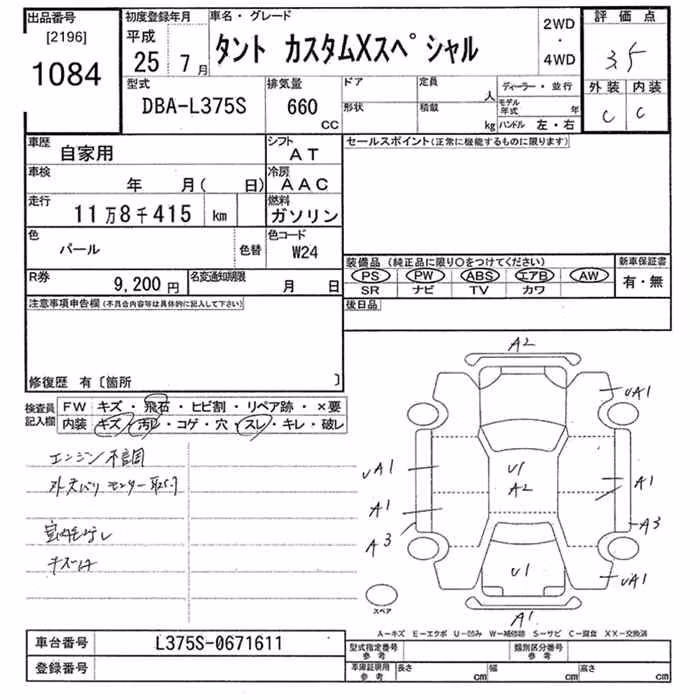 出品番号 初度登録年月 車名・グレード 2WD 評価点
[2196] 平成 ・ 3.5
1084 25年 7月 タント カスタムXスペシャル 4WD 外装 内装
型式 排気量 ドア 定員 人 ディーラー・並行 C C
DBA-L375S 660 cc 形状 積載 kg モデル年式 年
ハンドル 左・右
車歴 自家用 シフト AT セールスポイント(正常に機能するものに限ります)
車検 年 月( 日) 冷房 AAC
走行 11万8千415 km 燃料 ガソリン
色 パール 色替 色コード W24
装備品(純正品に限り○をつけてください) 新車保証書
R券 9,200円 名変通知期限 月 日 PS PW ABS エアB AW 有・無
SR ナビ TV カワ
注意事項申告欄(不具合内容等は具体的に記入して下さい) 後日品
修復歴 有〔箇所 〕
検査員記入欄 FW キズ・飛石・ヒビ割・リペア跡・×要
内装 キズ・汚れ・コゲ・穴・スレ・キレ・破レ
エンジン不調
キズ
A2
UA1
UA1 U1 A1
A1 A2
A3 A3
U1 UA1
スペア A1
A-キズ E-エクボ U-凹み W-補修跡 S-サビ C-腐食 XX-交換済
車台番号 L375S-0671611 型式指定番号 参考 類別区分番号 参考
登録番号 車庫証明用 参考 長さ cm 幅 cm 高さ cm